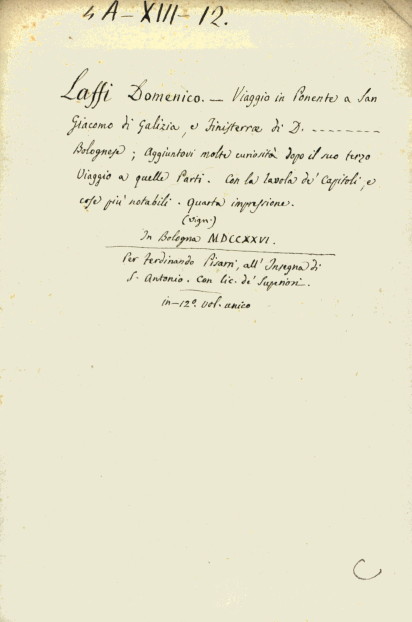 4 A-XIII-12.
Laffi Domenico. — Viaggio in Ponente a San
Giacomo di Galizia, e Finisterræ di D. --------
Bolognese; Aggiuntovi molte curiosità dopo il suo terzo
Viaggio a quelle Parti. Con la tavola de' Capitoli, e
cose più notabili. Quarta impressione.
(Vign:)
In Bologna MDCCXXVI.
Per Ferdinando Pisarri, all' Insegna di
S. Antonio. Con lic. de' Superiori.
in-12º. vol. unico
C